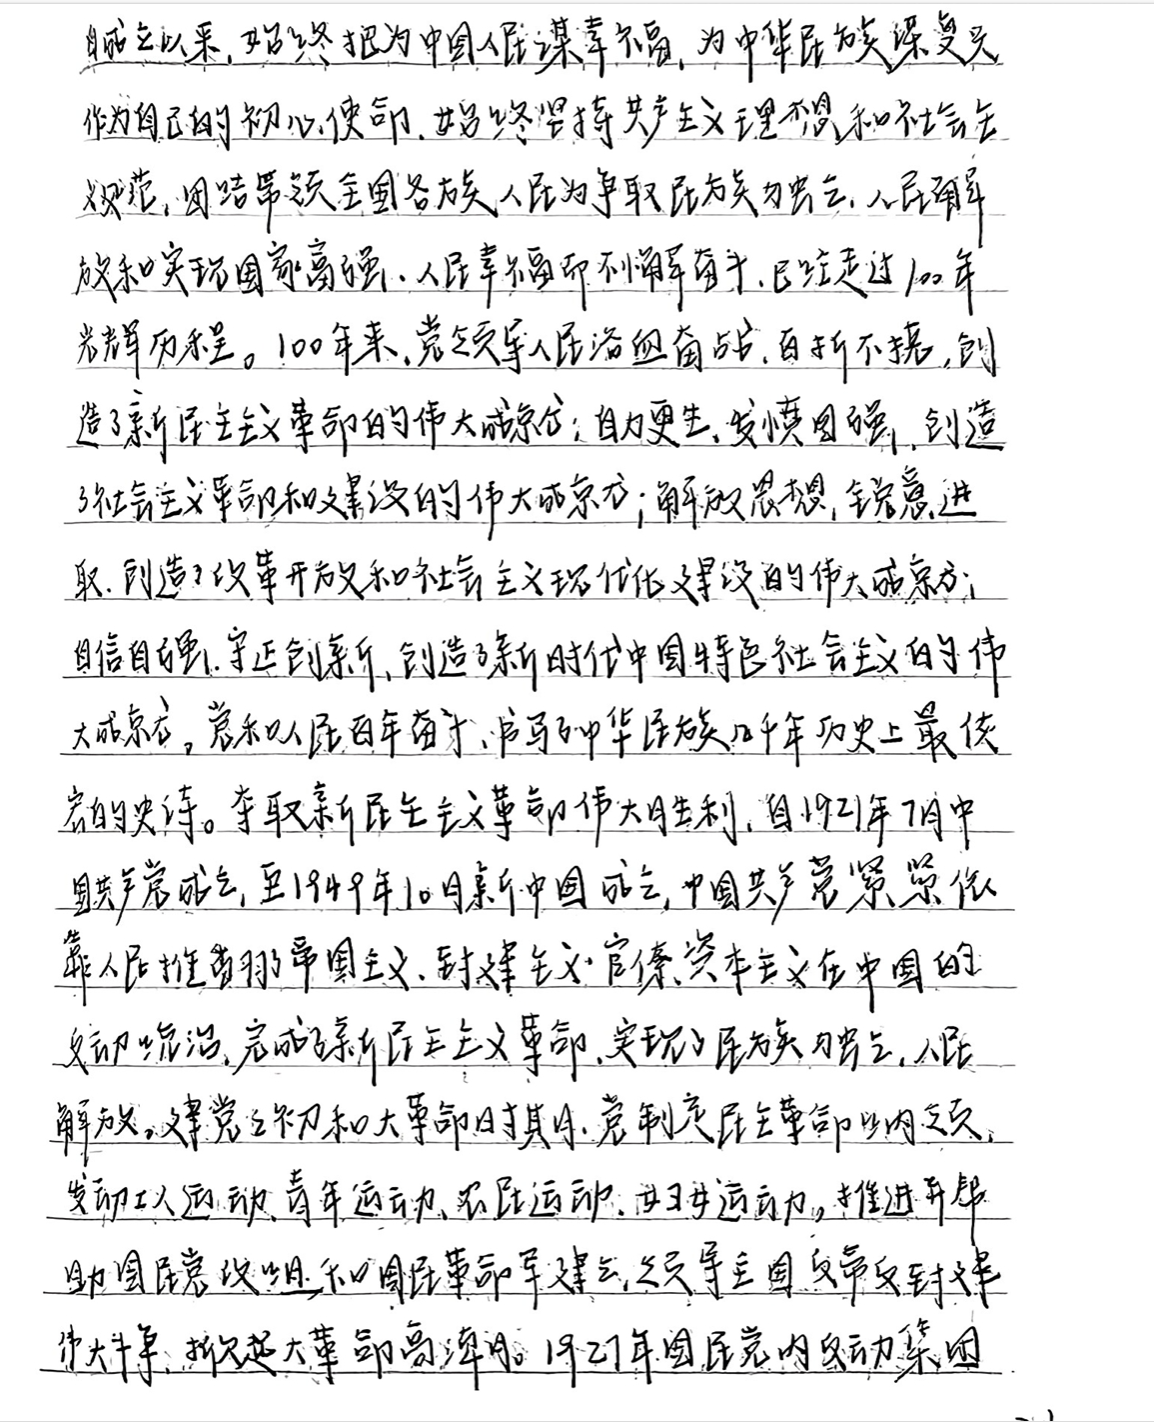 自成立以来，始终把为中国人民谋幸福、为中华民族谋复兴
作为自己的初心使命，始终坚持共产主义理想和社会主
义规范，团结带领全国各族人民为争取民族独立、人民解
放和实现国家富强、人民幸福而不懈奋斗，已经走过100年
光辉历程。100年来，党领导人民浴血奋战、百折不挠，创
造了新民主主义革命的伟大成就；自力更生、发愤图强，创造
了社会主义革命和建设的伟大成就；解放思想，锐意进
取，创造了改革开放和社会主义现代化建设的伟大成就；
自信自强、守正创新，创造了新时代中国特色社会主义的伟
大成就。党和人民百年奋斗，书写了中华民族几千年历史上最恢
宏的史诗。夺取新民主主义革命伟大胜利，自1921年7月中
国共产党成立，至1949年10月新中国成立，中国共产党紧紧依
靠人民推翻了帝国主义、封建主义、官僚资本主义在中国的
反动统治，完成了新民主主义革命，实现了民族独立，人民
解放。建党之初和大革命时期，党制定民主革命纲领，
发动工人运动、青年运动、农民运动、妇女运动，推进并帮
助国民党改组和国民革命军建立，领导全国反帝反封建
伟大斗争，掀起大革命高潮。1927年国民党内反动集团